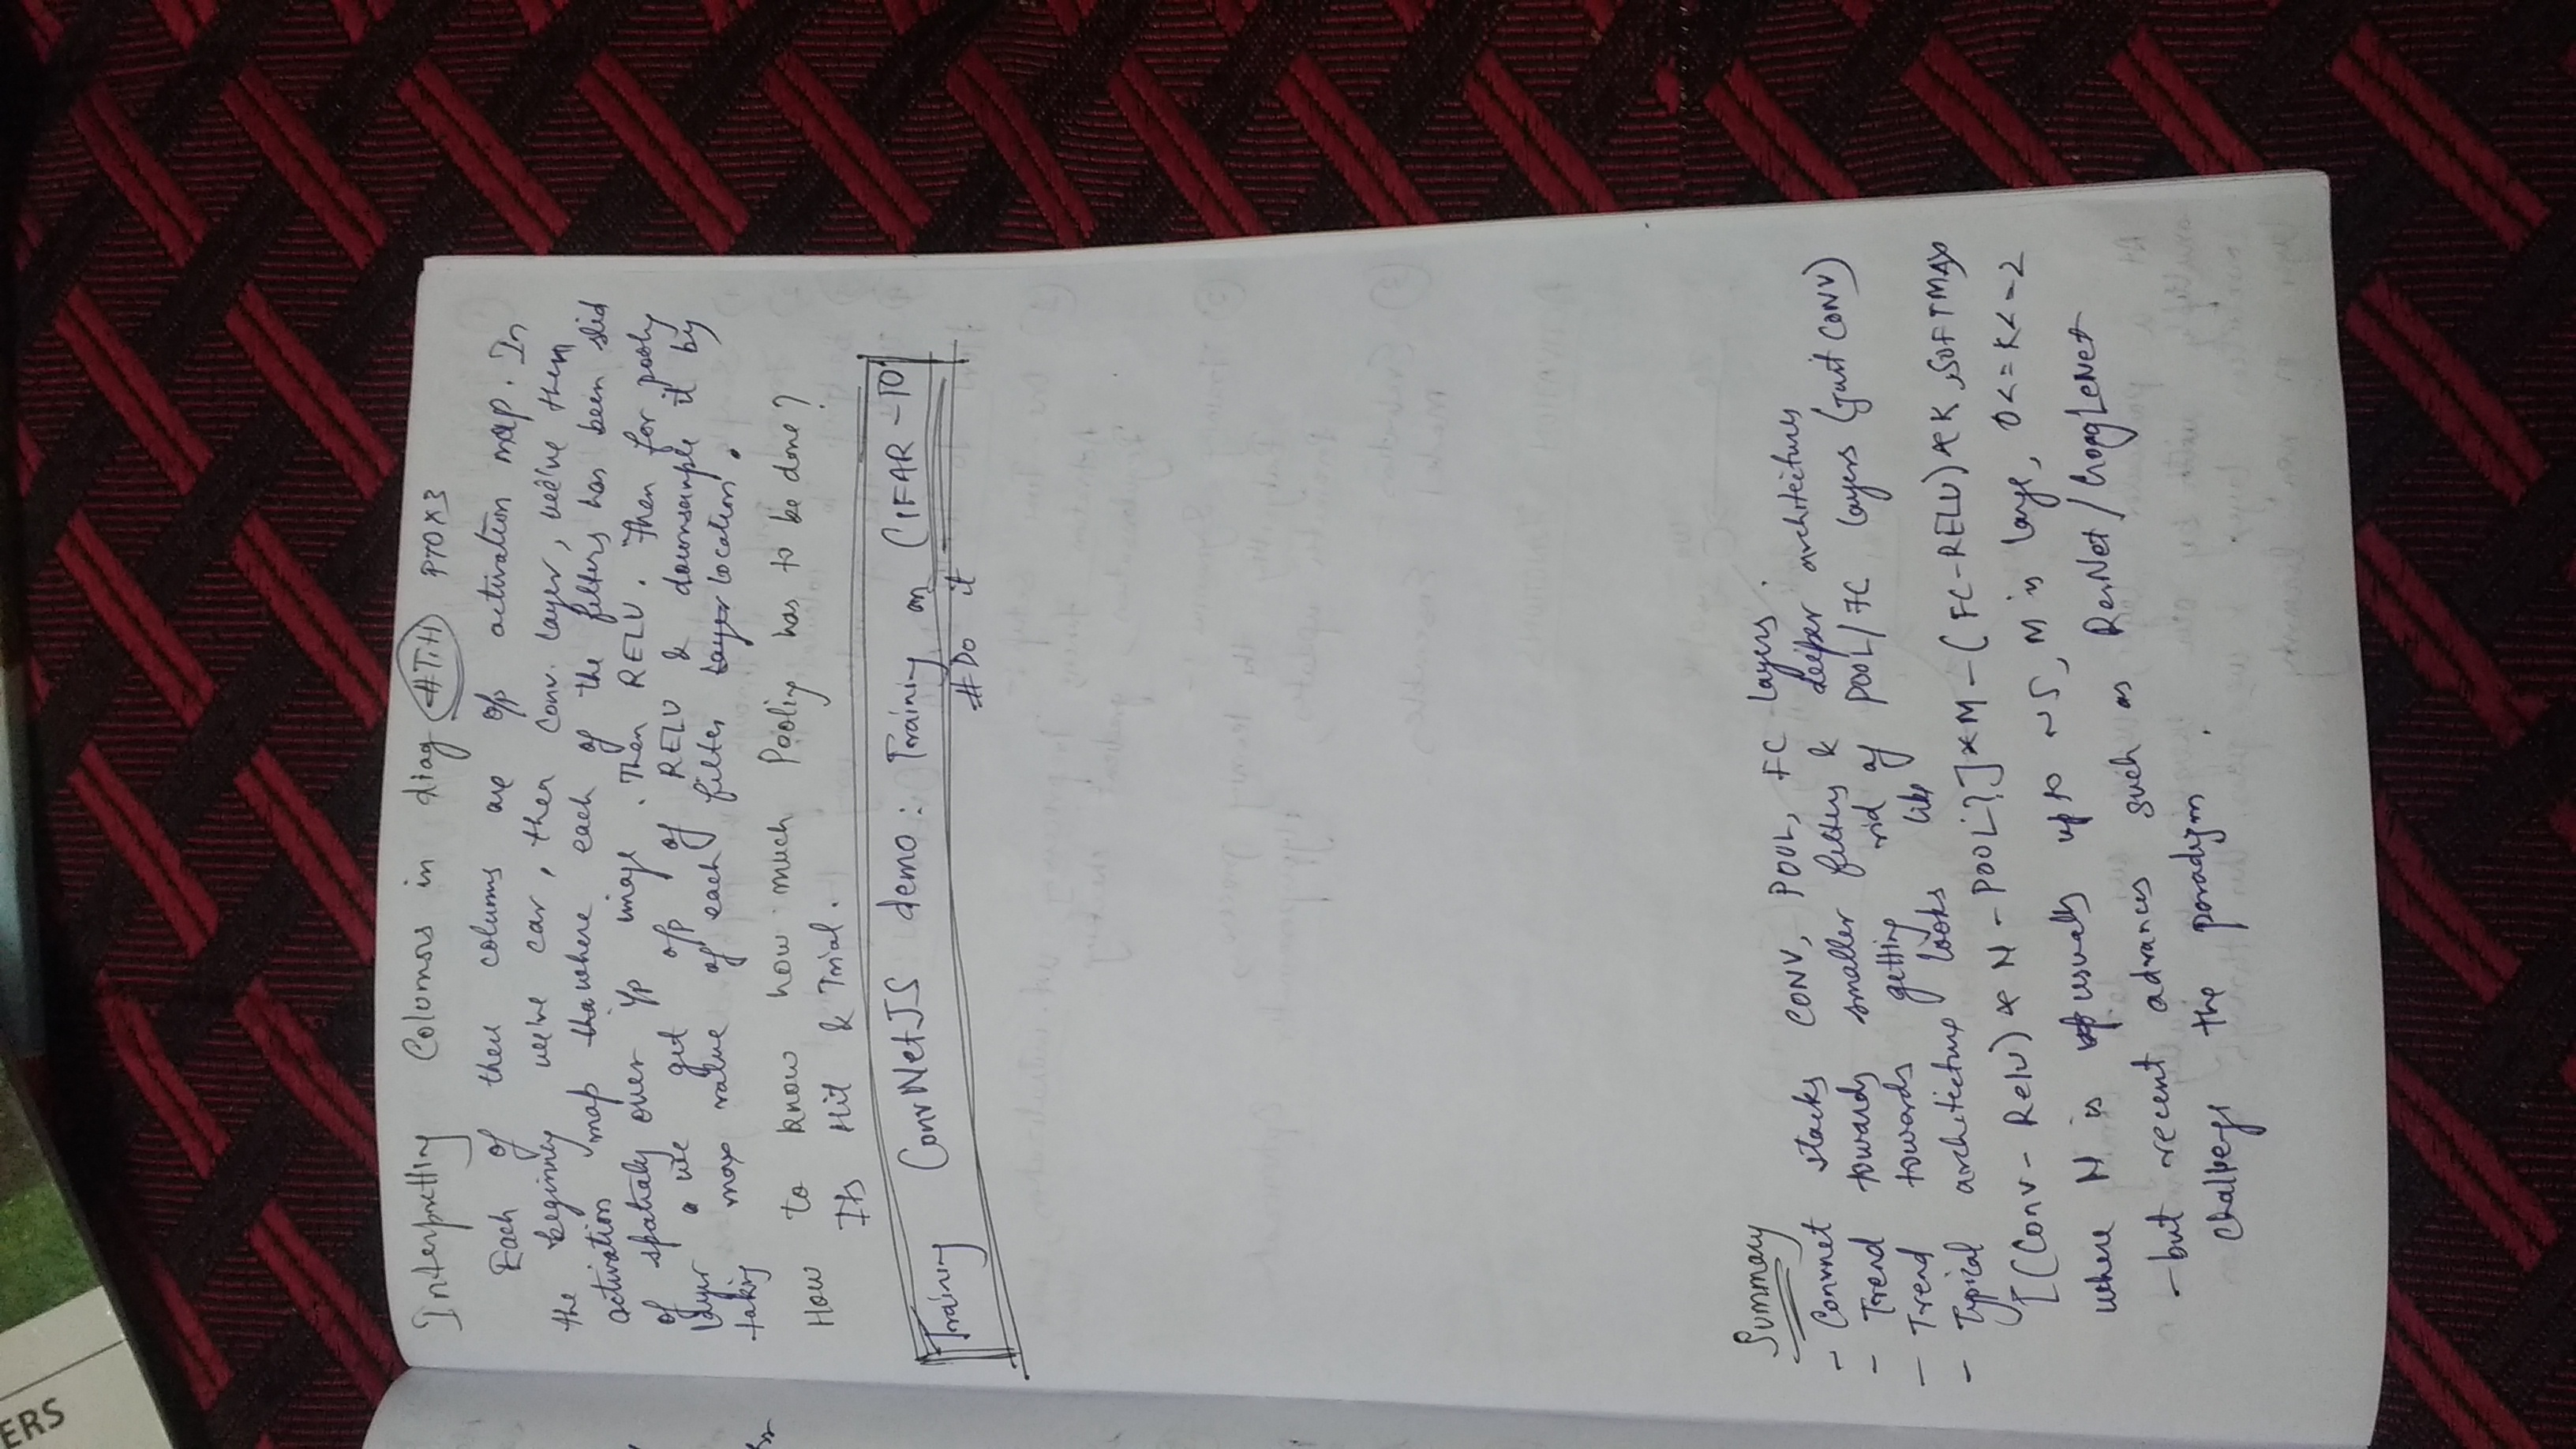 Interpretting Colomns in diag #TiH PTO X3
Each of these columns are o/p activation map. In
the beginning we've car, then conv. layer, we've then
activation map where each of the filters has been slid
of spatially over i/p image. Then RELU. Then for pooly
layer we get o/p of RELU & downsample it by
taking max value of each filter layer location.
How to know how much Pooling has to be done?
Its Hit & Trial.
Training ConvNetJS demo: Training on CIFAR-10
#Do it
Summary
- Convnet stacks CONV, POOL, FC layers
- Trend towards smaller filters & deeper architectures
- Trend towards getting rid of POOL/FC layers (just CONV)
- Typical architecture looks like
[(Conv - Relu) * N - POOL?] * M - (FC-RELU) * K, SOFTMAX
where N is usually upto ~5, M is large, 0<=K<=2
- but recent advances such as ResNet/GoogLeNet
challenge the paradigm.
ERS